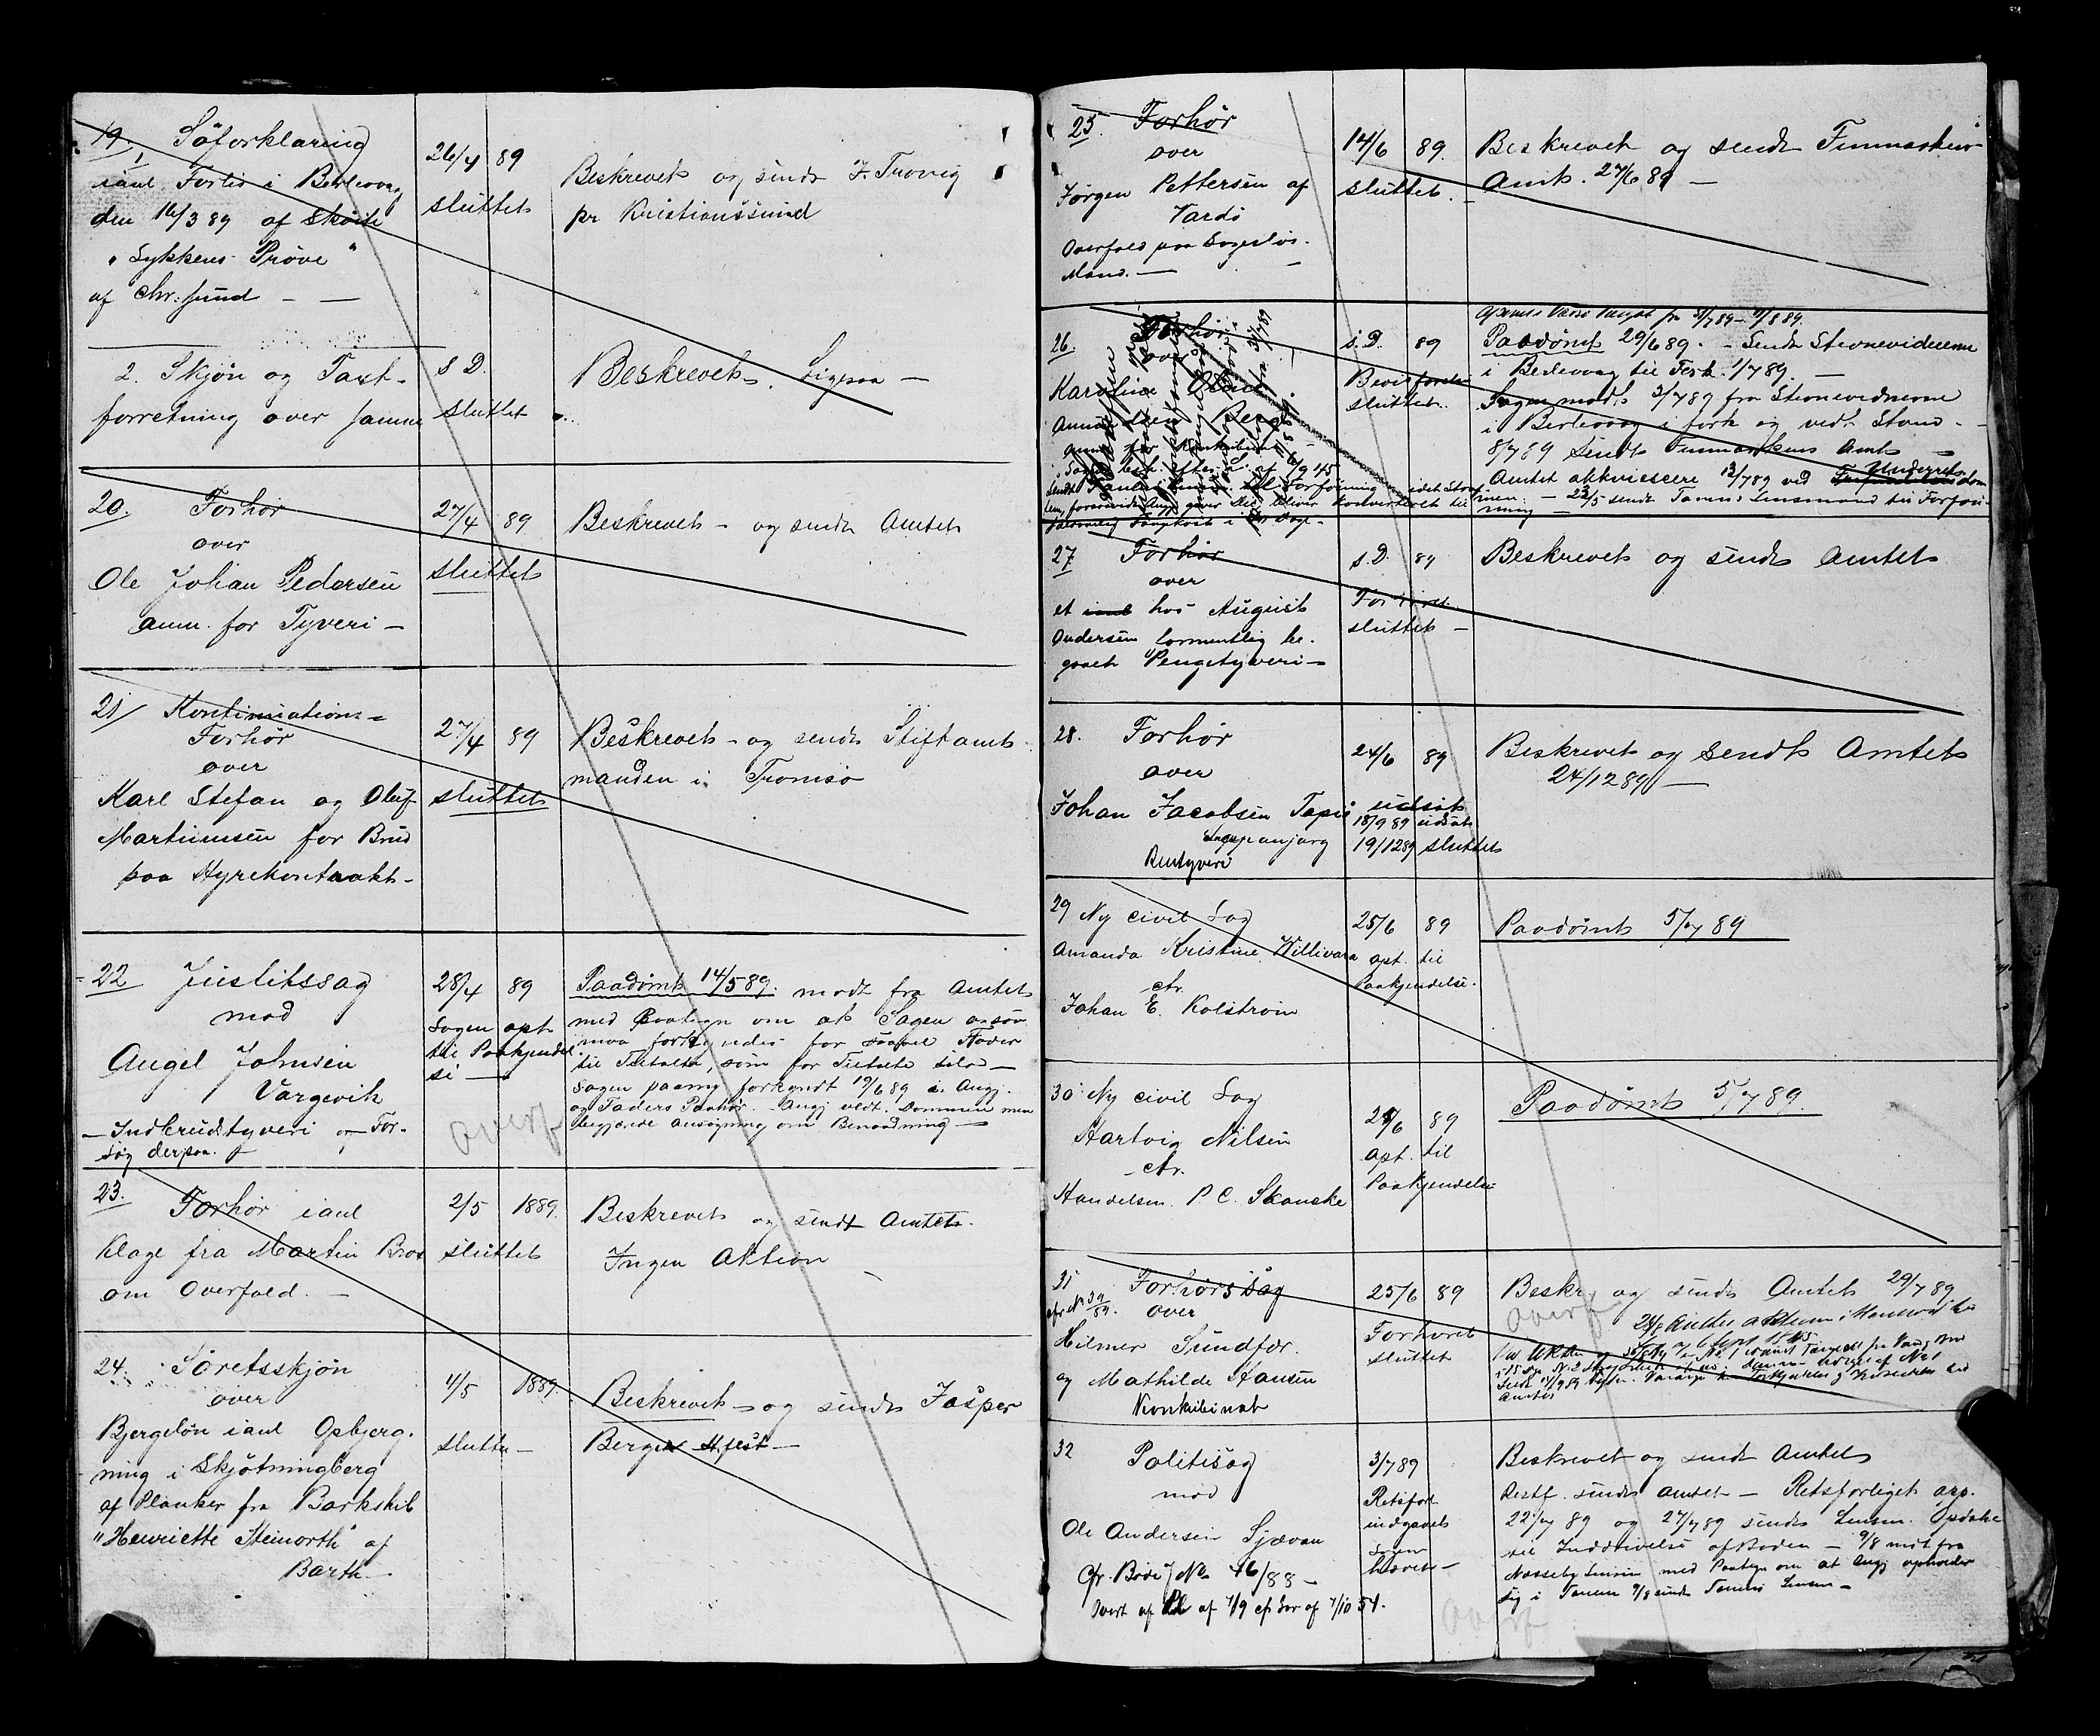 19. 1 Søforklaring
ianl Forlis i Berlevaag
den 16/3 89 af Skøite
"Lykkens Prøve"
af Chr:sund —
26/4 89
sluttet
Beskrevet og sendt J. Trovig
pr Kristianssund
2. Skjøn og Taxt-
forretning over samme
s D.
sluttet
Beskrevet. Ligesaa —
20. Forhør
over
Ole Johan Pedersen
anm. for Tyveri —
27/4 89
sluttet
Beskrevet - og sendt Amtet
21/ Kontinuations-
Forhør
over
Karl Stefan og Oluf
Martinussen for Brud
paa Hyrekontrakt -
27/4 89
sluttet
Beskrevet - og sendt Stiftamt-
manden i Tromsø
22 Justitssag
mod
Angel Johnsen
Vargevik
— Indbrudstyveri og For-
søg derpaa.
28/4 89
Sagen opt
til Paakjendel
se —
overf
Paadømt 14/5 89. modt fra Amtet
med Paategn om at Sagen
maa forkyndes for Fader
til Tiltalte, som for Tiltalte selv —
Sagen paany forkyndt 19/6 89 i Angj.
og Faders Paahør. - Angj vedt. Dommen men
begjærede ansøgning om Benaadning —
23. Forhør ianl
Klage fra Martin Bros
om Overfald. —
2/5 1889.
sluttet
Beskrevet og sendt Amtet.
Ingen Aktion
24. Søretsskjøn
over
Bjergeløn ianl Opbjerg-
ning i Skjøtningberg
af Planker fra Barkskib
"Henriette Steinorth" af
Barth —
4/5 1889.
sluttet —
Beskrevet - og sendt Jasper
Berger H.fest —
25. Forhør
over
Jørgen Pettersen af
Vardø
Overfald paa Sagesløs
Mand. —
14/6 89.
sluttet.
Beskrevet og sendt Finmarkens
Amt. 27/6 89 —
26. Forhør
over
Karoline Olsen
s. D. 89
sluttet.
Paadømt 29/6 89. - Sendt Stevnevidnerne
i Berlevaag til Fork. 1/7 89. —
Sagen modt. 3/7 89 fra Stevnevidnerne
i Berlevaag i fork og vedt. Stand -
8/7 89 sendt Finmarkens Amt —
Amtet akkviescere 13/7 89 ved Underrets dom
— 22/5 sendt Tanens Lensmand til Forføi-
ning —
27 Forhør
over
et hos August
Andersen formentlig be-
gaaet Pengetyveri —
s. D. 89
Forhøret
sluttet —
Beskrevet og sendt Amtet
28. Forhør
over
Johan Jacobsen Tapio
Rentyveri
24/6 89
udsat
18/9 89 udsat
19/12 89 sluttet
Beskrevet og sendt Amtet
24/12 89 —
29 Ny civil Sag
Amanda Kristine Willivara
ctr.
Johan E. Kolstrøm
25/6 89
opt. til
Paakjendelse.
Paadømt 5/7 89
30 Ny civil Sag
Hartvig Nilsen
ctr.
Handelsm. P. C. Skanske
25/6 89
opt. til
Paakjendelse
Paadømt 5/7 89.
31 Forhørssag
cfr. No 39/89. over
Hilmer Sundfær.
og Mathilde Hansen
Konkubinat
25/6 89
Forhøret
sluttet
Beskr. og sendt Amtet 29/7 89
overf
32 Politisag
mod
Ole Andersen Sjævan
Cfr. Bøde/No 46/88 —
3/7 89
Retsforl.
indgaaet
Sagen
hævet —
Beskrevet og sendt Amtet
Restf. sendt Amtet — Retsforliget app.
22/7 89 og 27/7 89 sendt Lensm. Opdahl
til Inddrivelse af Boden — 9/8 mdt fra
Næsseby Lensm med Paategn om at Angj opholder
sig i Tanen 9/8 sendt Tanens Lensm —
overf